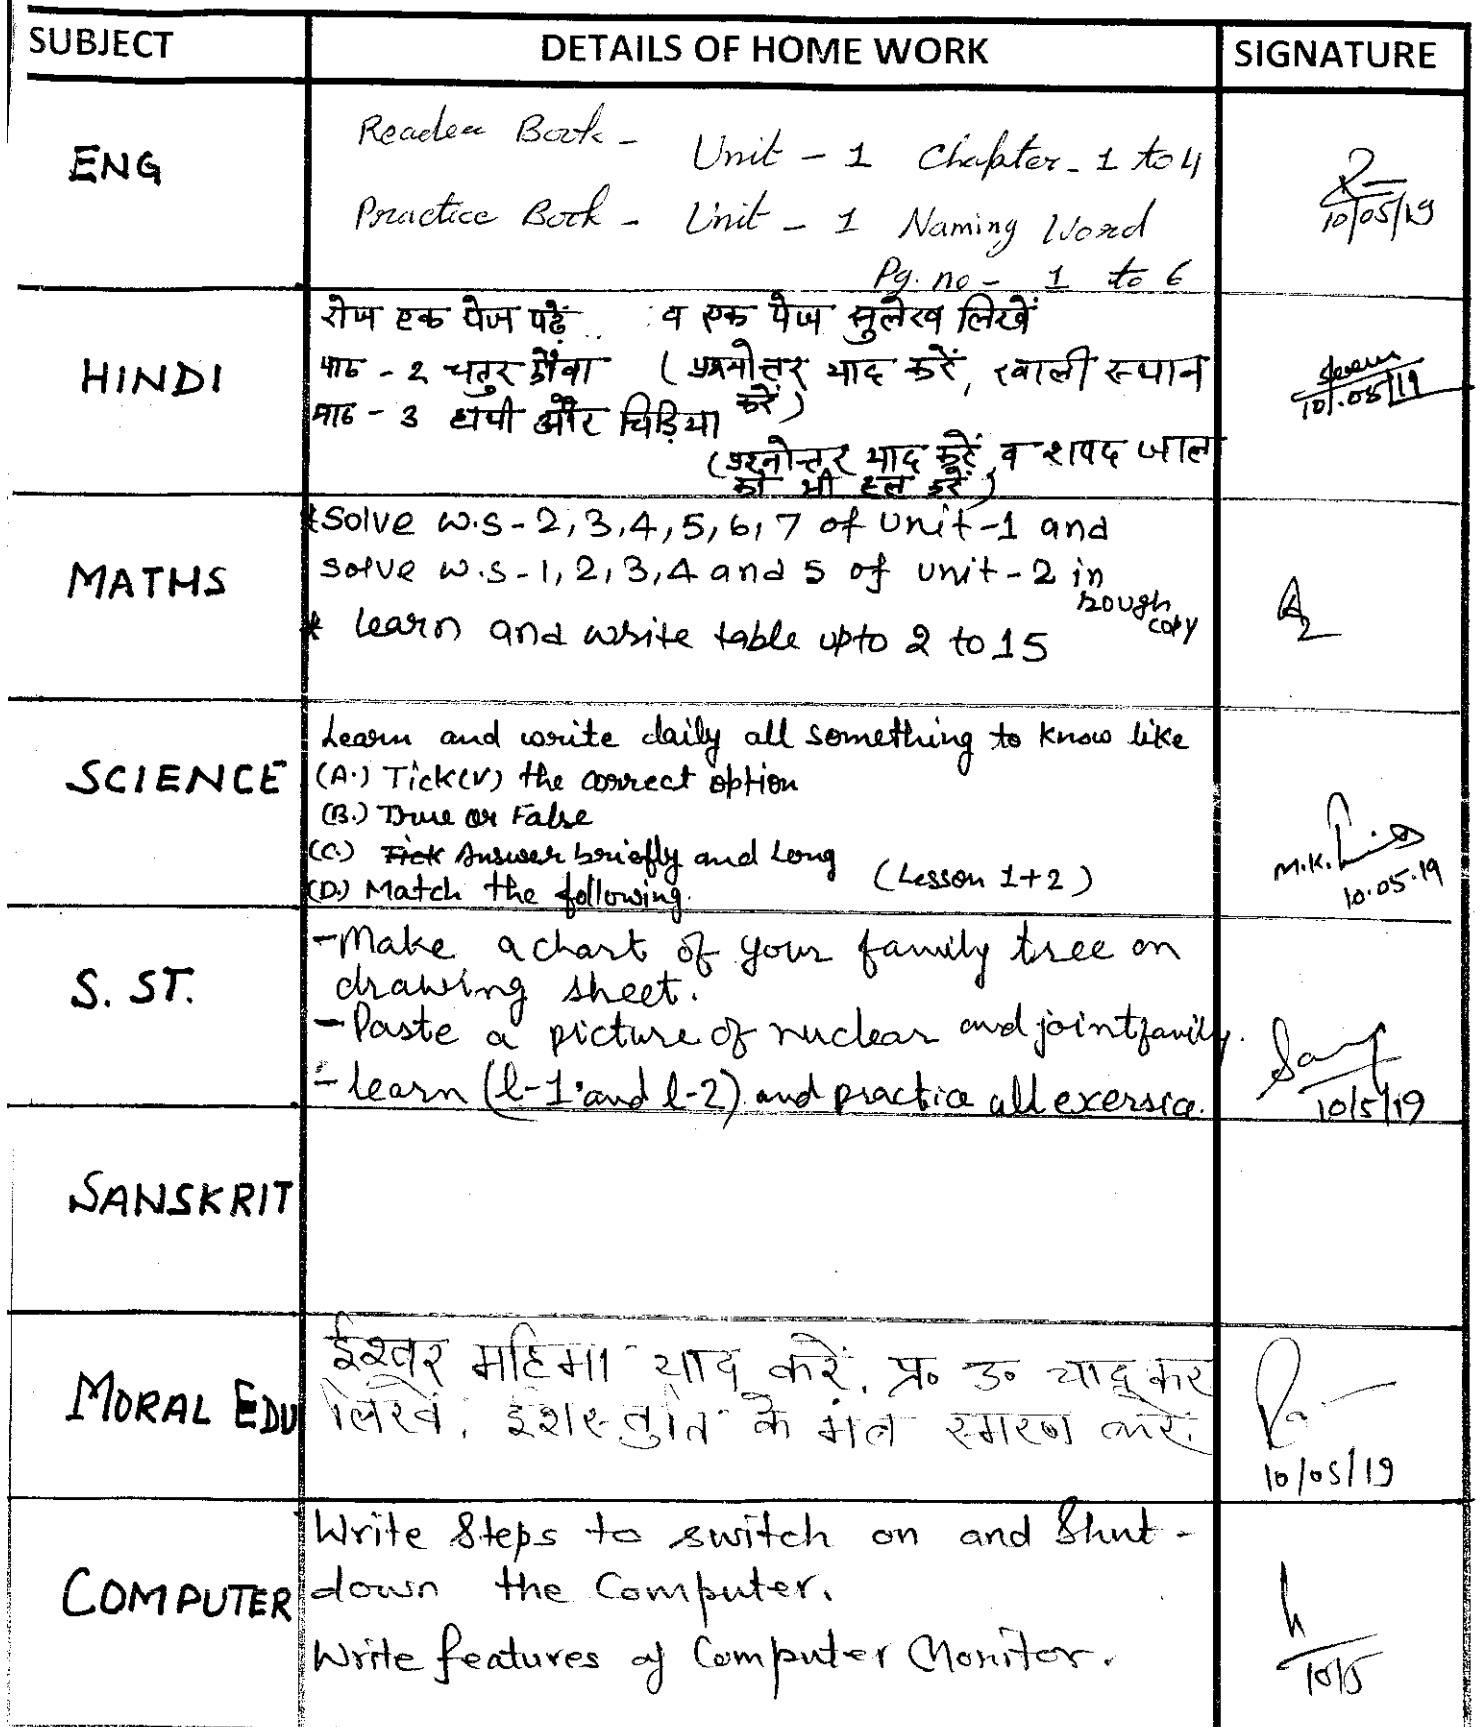 SUBJECT DETAILS OF HOME WORK SIGNATURE
ENG
Reader Book - Unit - 1 Chapter - 1 to 4
Practice Book - Unit - 1 Naming Word
Pg. no - 1 to 6
10/05/19
HINDI
रोज एक पेज पढ़ें व एक पेज सुलेख लिखें
पाठ - 2 चतुर कौवा (प्रश्नोत्तर याद करें, खाली स्थान
करें)
पाठ - 3 और चिड़िया
(प्रश्नोत्तर याद करें व शपद जाल
को भी हल करें)
10.05.19
MATHS
* Solve w.s - 2, 3, 4, 5, 6, 7 of unit - 1 and
solve w.s - 1, 2, 3, 4 and 5 of unit - 2 in
rough
copy
* learn and write table upto 2 to 15
SCIENCE
Learn and write daily all something to know like
(A.) Tick(√) the correct option
(B.) True or False
(C.) Tick Answer briefly and Long
(D.) Match the following. (Lesson 1+2)
M.K.
10.05.19
S. ST.
- Make a chart of your family tree on
drawing sheet.
- Paste a picture of nuclear and joint family.
- learn (l-1 and l-2) and practice all exersice.
10/5/19
SANSKRIT
MORAL EDU
ईश्वर महिमा याद करें. प्र० उ० याद कर
लिखें. ईशस्तुति के मंत्र स्मरण करें.
10/05/19
COMPUTER
Write Steps to switch on and Shut -
down the Computer.
Write features of Computer Monitor.
10/5